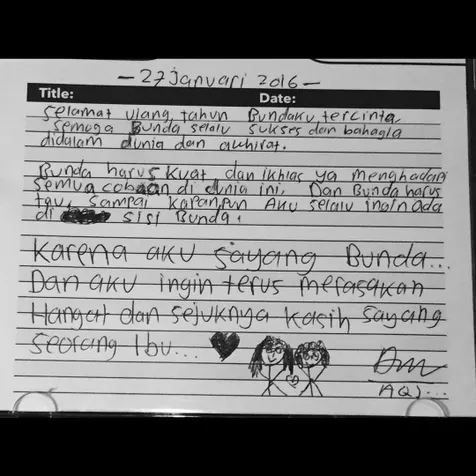 - 27 Januari 2016 -
Title: Date:
Selamat ulang tahun Bundaku tercinta
Semoga Bunda selalu sukses dan bahagia
didalam dunia dan akhirat.
Bunda harus kuat dan ikhlas ya menghadapi
semua cobaan di dunia ini. Dan Bunda harus
tau, sampai kapanpun Aku selalu ingin ada
di sisi Bunda.
Karena aku sayang Bunda...
Dan aku ingin terus merasakan
Hangat dan sejuknya kasih sayang
seorang Ibu...